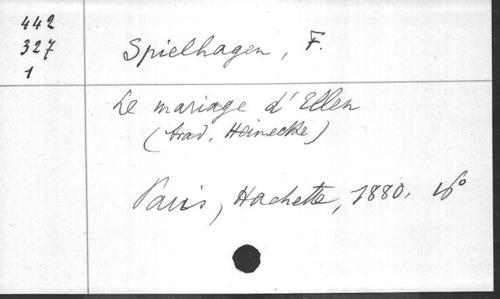 442
327
1
Spielhagen, F.
Le mariage d'Ellen
(trad. Heinecke)
Paris, Hachette, 1880, 16°